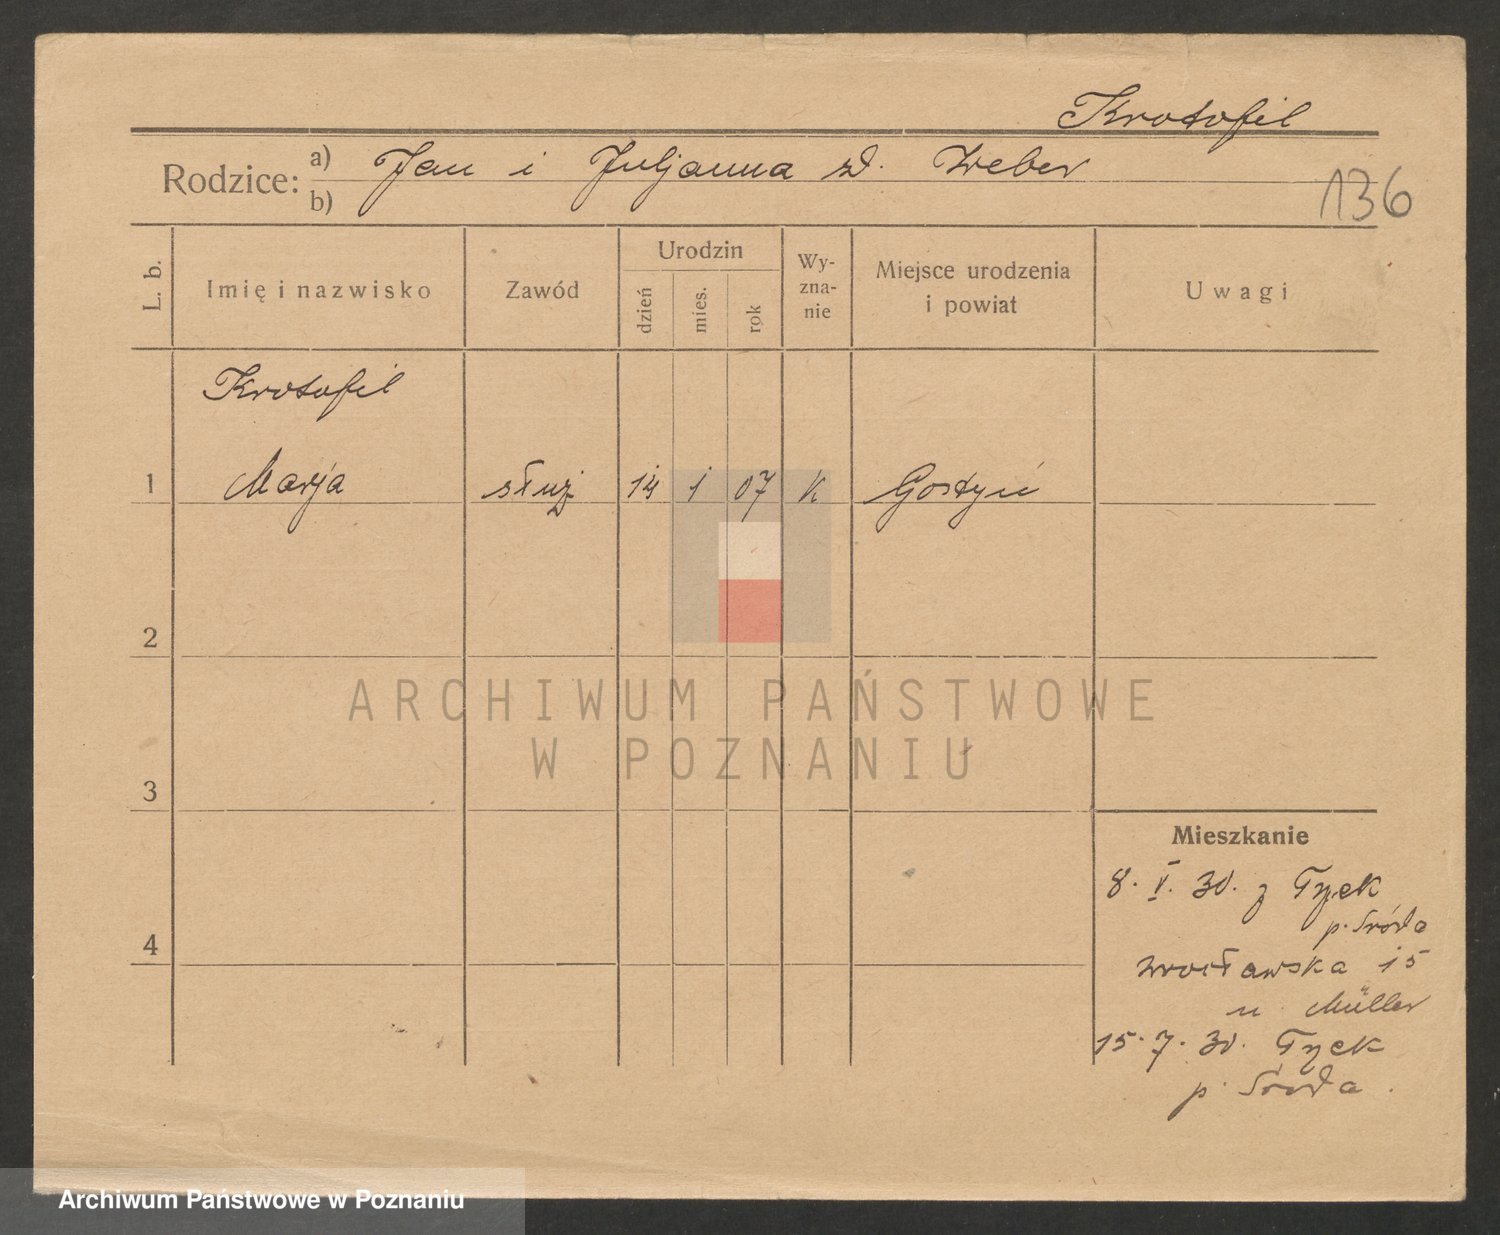 Krotofil
Rodzice: a) Jan i Juljanna z d. Weber
b)
136
L. b.
Imię i nazwisko
Zawód
Urodzin
dzień
mies.
rok
Wy-
zna-
nie
Miejsce urodzenia
i powiat
Uwagi
Krotofil
1 Marja służ 14 1 07 K Gostyń
2
3
4
Mieszkanie
8. V. 30. z
p. Środa
Wrocławska 15
u Müller
15. 7. 30.
p. Środa.
ARCHIWUM PAŃSTWOWE
W POZNANIU
Archiwum Państwowe w Poznaniu